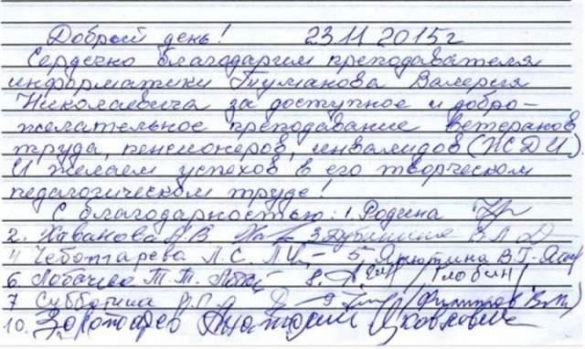 Добрый день! 23 11 2015г
Сердечно благодарим преподавателя
информатики Туманова Валерия
Николаевича за доступное и добро-
желательное преподавание ветеранов
труда, пенсионеров, инвалидов (ЖСДИ).
И желаем успехов в его творческом
педагогическом труде!
С благодарностью: 1. Родина
2. Хаванова А.В 3.
4 Чеботарева Л.С. 5. В.Т.
6 Лобачева Т.Т. 8.
7 Субботина 9
10. Золотарев Анатолий